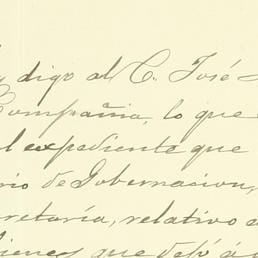 y digo al C. José
Compañia, lo que
el expediente que
rio de Gobernacion,
cretaría, relativo a
bienes que dejó á